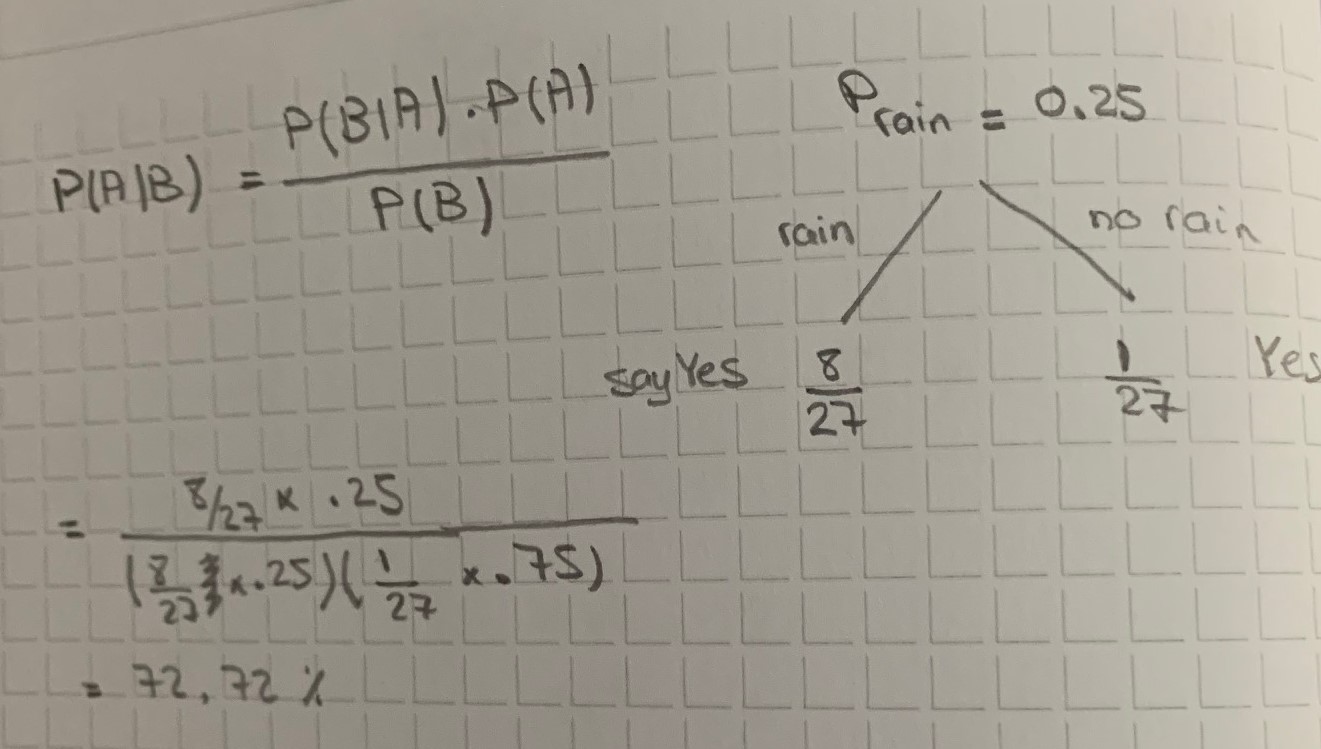 P(A|B) = P(B|A) . P(A)
P(B)
P rain = 0.25
rain
no rain
say Yes 8/27
1/27 Yes
= 8/27 x .25
(8/27 x .25)(1/27 x .75)
= 72,72 %